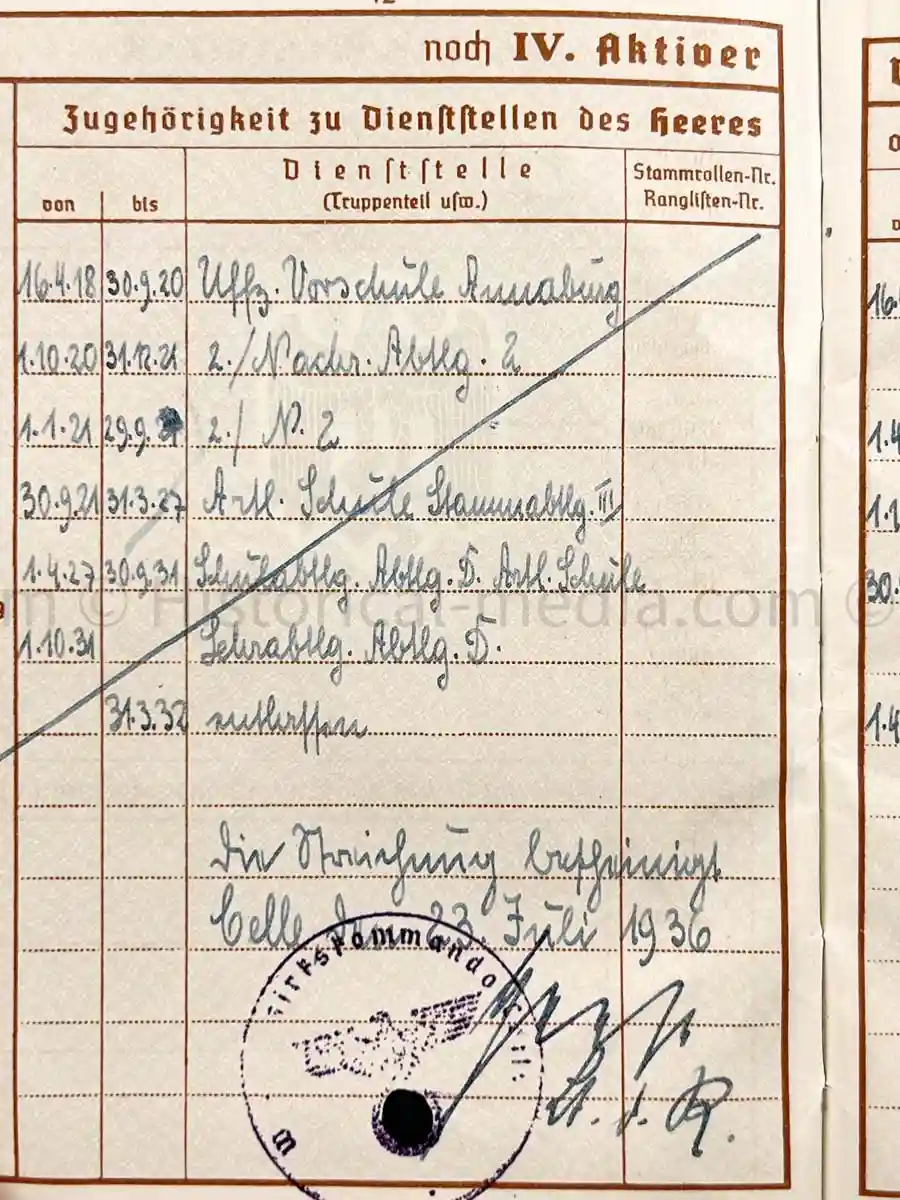 noch IV. Aktiver
Zugehörigkeit zu Dienststellen des Heeres
von bis Dienststelle (Truppenteil usw.) Stammrollen-Nr. Ranglisten-Nr.
16.4.18 30.9.20 Uffz. Vorschule Annaburg
1.10.20 31.12.21 2./Nachr. Abtlg. 2
1.1.21 29.9. 2./ N. 2
30.9.21 31.3.27 Artl. Schule Stammabtlg. III
1.4.27 30.9.31 Schulabtlg. Abtlg. D. Artl. Schule
1.10.31 Lehrabtlg. Abtlg. D.
31.3.32 entlassen
Die Streichung bescheinigt
Celle den 23. Juli 1936
© Historical-media.com ©